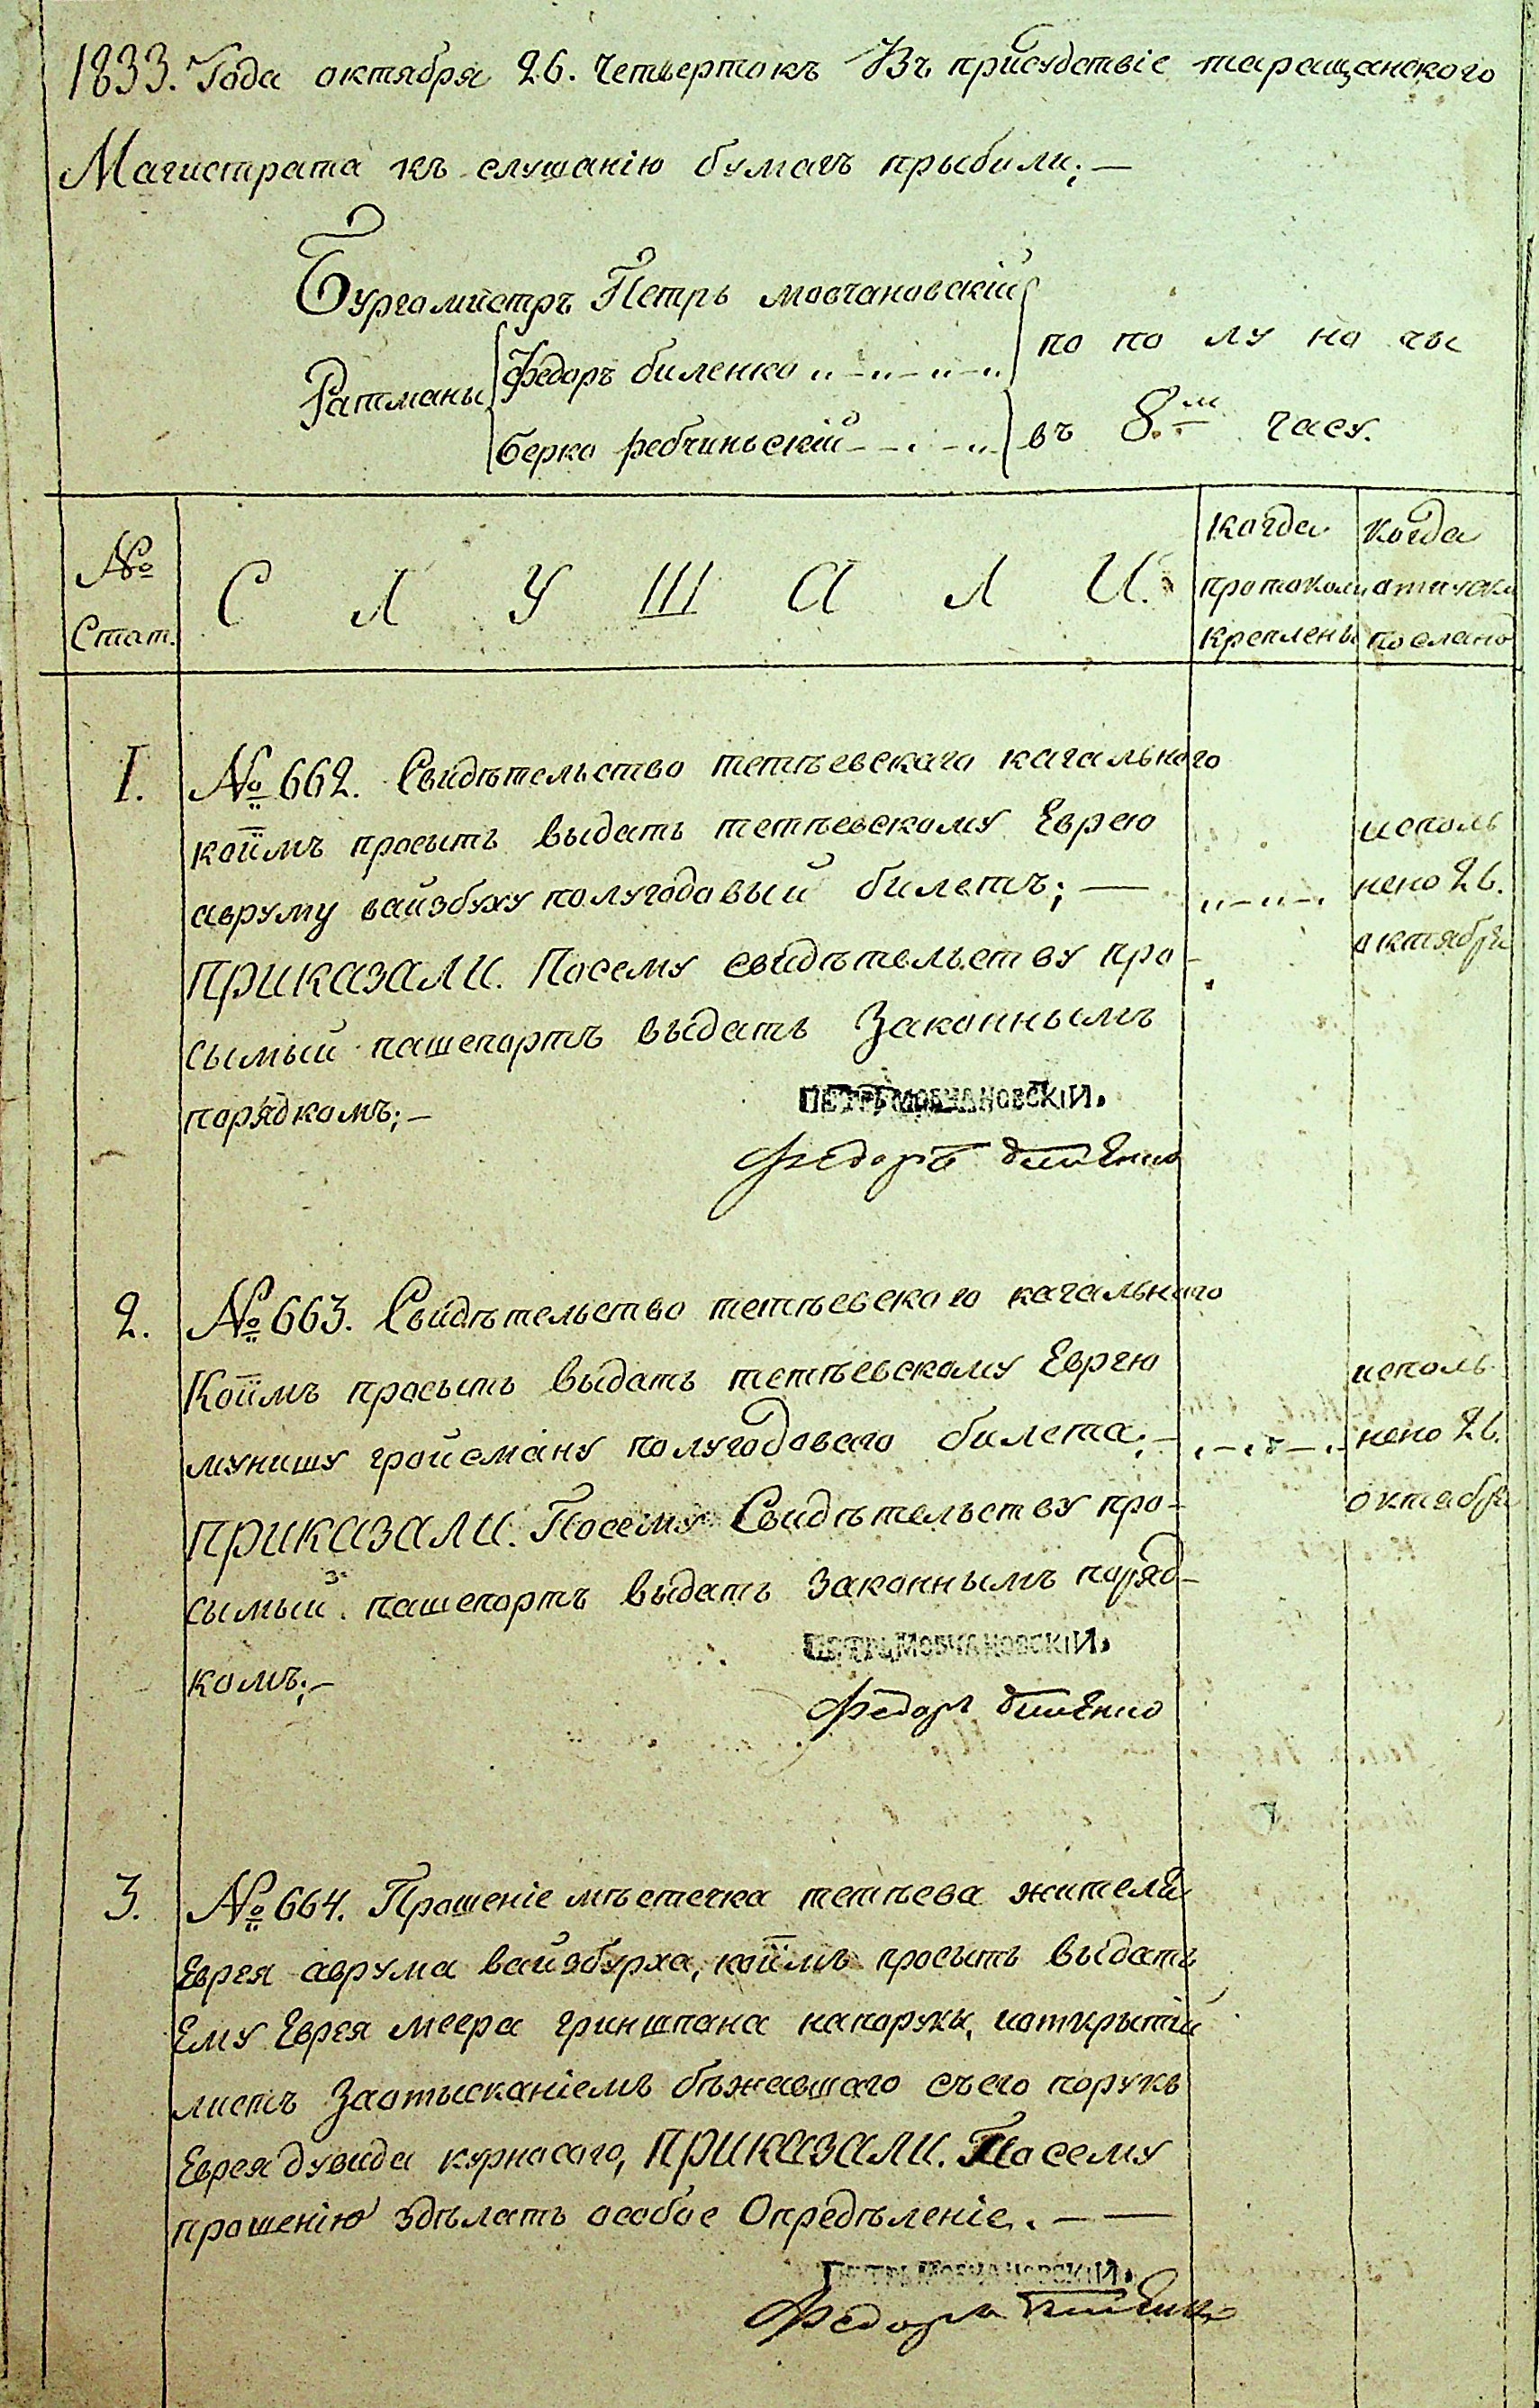 1833. Года октября 26. Четвертокъ Въ присудствіе таращанского
Магистрата къ слушанію бумагъ прыбили; —
Бургомистръ Петръ мовчановскій
Ратманы
Федоръ биленко
берко ребчиньскій
по по лу но чы
въ 8.м часу.
№ Стат.
С Л У Ш А Л И.
когда протоколы креплены
когда отпуски посланы
1.
№ 662. Свидѣтельство тетѣевскаго кагального
коіимъ просытъ выдать тетѣевскому Еврею
авруму вайзбуху полугодовый билетъ; —
ПРИКАЗАЛИ. Посему свидѣтельству про-
сымый пашепортъ выдать Законнымъ
порядкомъ; —
исполь
нено 26.
октября
ПЕТРЪ МОВЧАНОВСКІЙ.
Федоръ биленко
2.
№ 663. Свидѣтельство тетѣевского кагального
Коіимъ просытъ выдать тетѣевскому Еврею
мунишу гройсману полугодоваго билета; —
ПРИКАЗАЛИ. Посему Свидѣтельству про-
сымый пашепортъ выдать законнымъ поряд-
комъ; —
исполь
нено 26.
октября
ПЕТРЪ МОВЧАНОВСКІЙ.
Федоръ биленко
3.
№ 664. Прошеніе мѣстечка тетѣева жителя
Еврея аврума вайзбурха, коіимъ просытъ выдать
Ему Еврея меера гриншпана напоруки, иоткрытій
листъ Заотысканіемъ бѣжавшаго съего порукъ
Еврея дувида курносаго, ПРИКАЗАЛИ. Посему
прошенію здѣлать особое Опредѣленіе. — —
ПЕТРЪ МОВЧАНОВСКІЙ.
Федоръ биленко